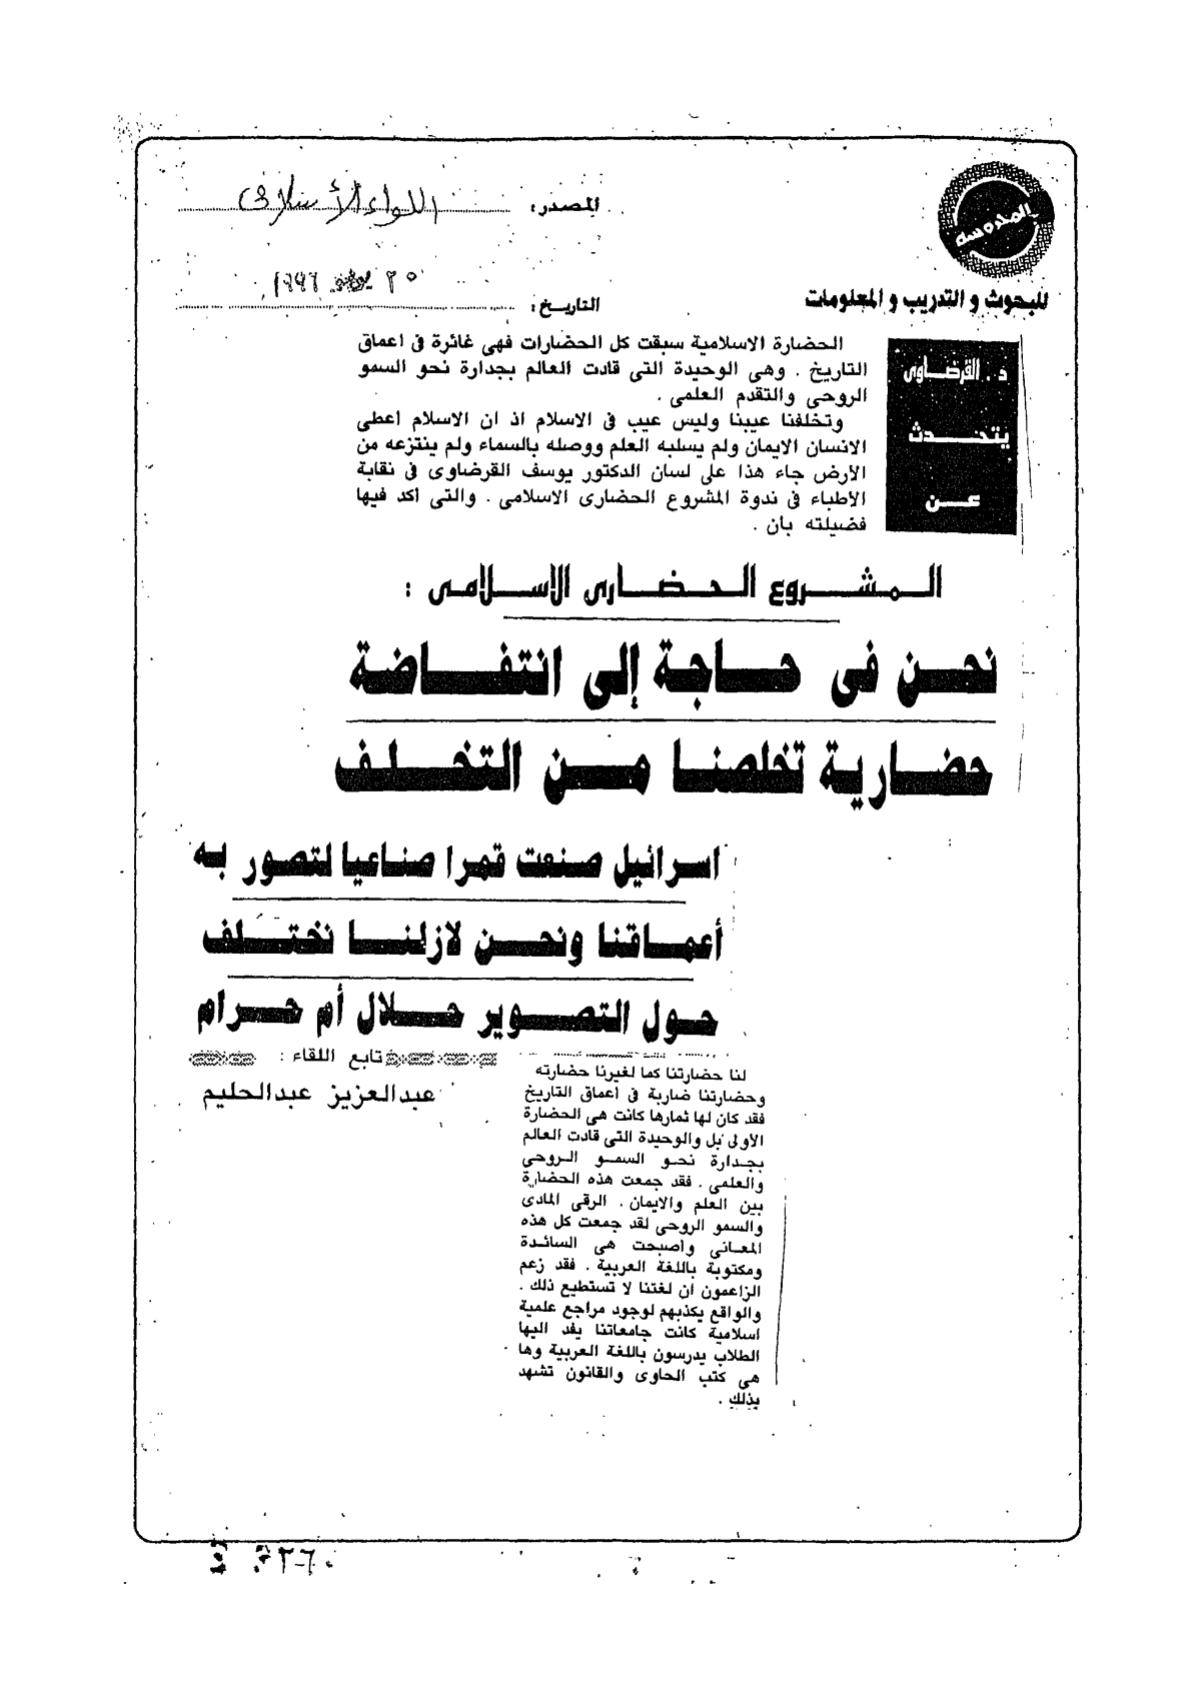 المصدر: اللواء الإسلامى
التاريخ: ٢٥ يوليو ١٩٩٦
للبحوث و التدريب و المعلومات
د. القرضاوى
يتحدث
عن
الحضارة الاسلامية سبقت كل الحضارات فهى غائرة فى اعماق
التاريخ . وهى الوحيدة التى قادت العالم بجدارة نحو السمو
الروحى والتقدم العلمى .
وتخلفنا عيبنا وليس عيب فى الاسلام اذ ان الاسلام اعطى
الانسان الايمان ولم يسلبه العلم ووصله بالسماء ولم ينتزعه من
الارض جاء هذا على لسان الدكتور يوسف القرضاوى فى نقابة
الاطباء فى ندوة المشروع الحضارى الاسلامى . والتى اكد فيها
فضيلته بان .
المشروع الحضارى الاسلامى :
نحن فى حاجة إلى انتفاضة
حضارية تخلصنا من التخلف
اسرائيل صنعت قمرا صناعيا لتصور به
أعماقنا ونحن لازلنا نختلف
حول التصوير حلال أم حرام
تابع اللقاء :
عبدالعزيز عبدالحليم
لنا حضارتنا كما لغيرنا حضارته
وحضارتنا ضاربة فى اعماق التاريخ
فقد كان لها ثمارها كانت هى الحضارة
الأولى بل والوحيدة التى قادت العالم
بجدارة نحو السمو الروحى
والعلمى . فقد جمعت هذه الحضارة
بين العلم والايمان . الرقى المادى
والسمو الروحى لقد جمعت كل هذه
المعانى واصبحت هى السائدة
ومكتوبة باللغة العربية . فقد زعم
الزاعمون ان لغتنا لا تستطيع ذلك .
والواقع يكذبهم لوجود مراجع علمية
اسلامية كانت جامعاتنا يفد اليها
الطلاب يدرسون باللغة العربية وها
هى كتب الحاوى والقانون تشهد
بذلك .